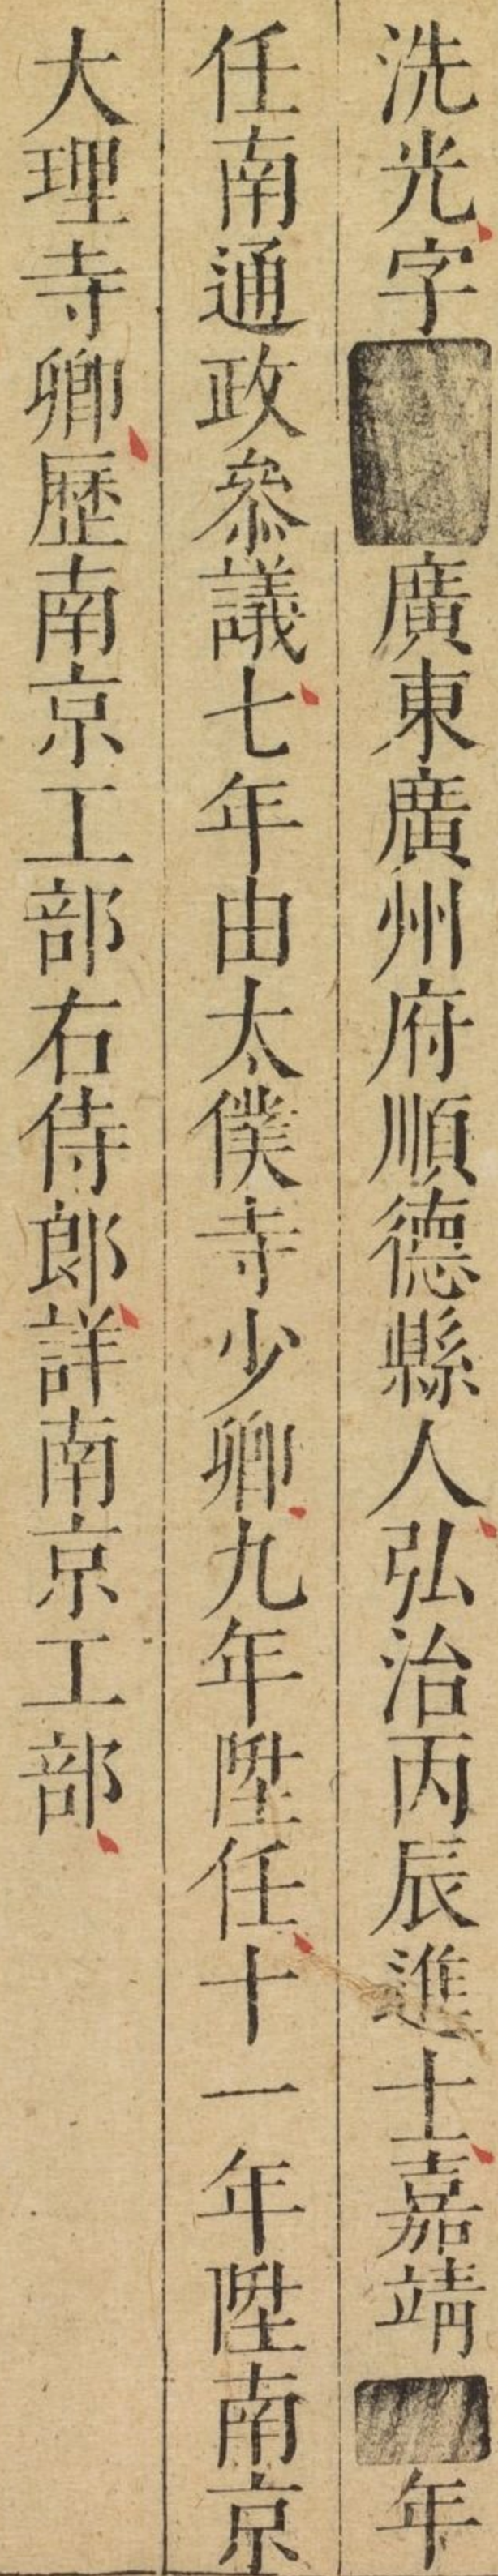 洗光字廣東廣州府順德縣人弘治丙辰進士嘉靖年
任南通政叅議七年由太僕寺少卿九年陞任十一年陞南京
大理寺卿歷南京工部右侍郎詳南京工部